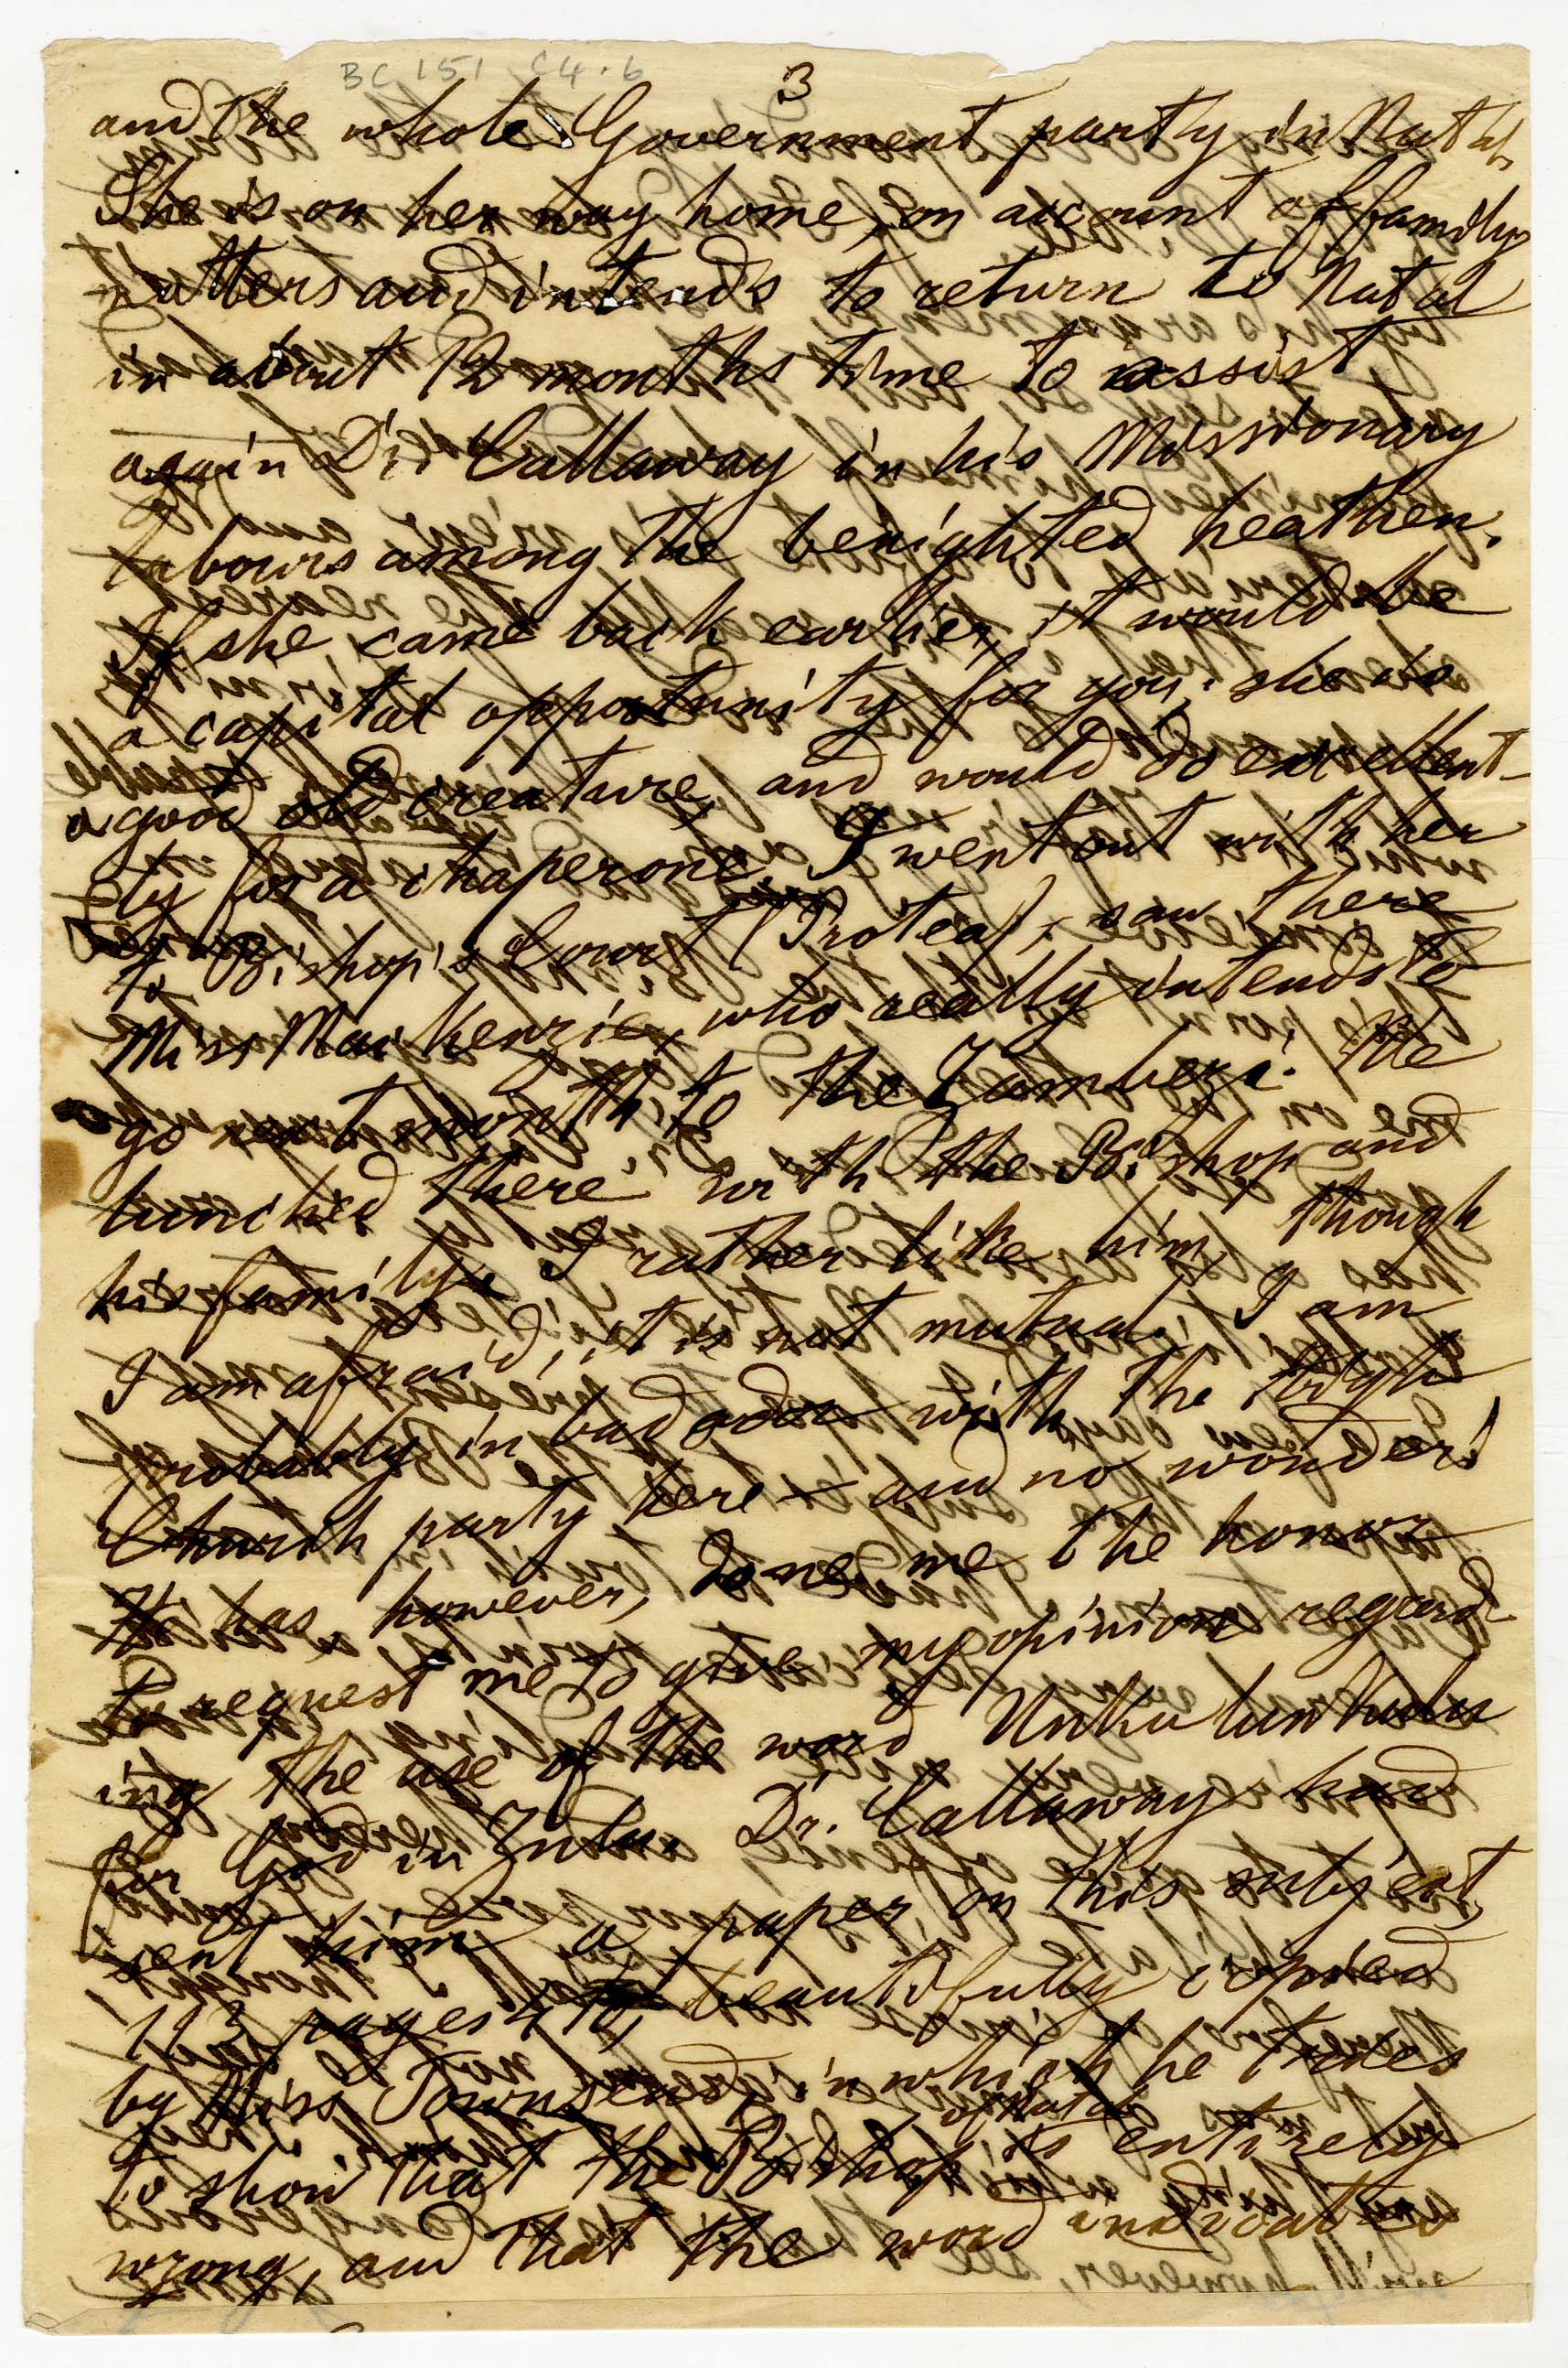 BC 151 C4.6
3
and the whole Government party in Natal.
She is on her way home, on account of family
matters and intends to return to Natal
in about 12 months time to assist
again Dr. Callaway in his Missionary
labours among the benighted heathen.
If she came back earlier, it would be
a capital opportunity for you; she is
a good old creature, and would do excellent-
ly for a chaperone. I went out with her
to Bishop's Court (Protea), saw there
Miss MacKenzie, who really intends to
go next month to the Zambezi. We
lunched there with the Bishop and
his family. I rather like him, though
I am afraid, it is not mutual. I am
probably in bad odor with the High
Church party here – and no wonder!
He has however, done me the honor
to request me to give my opinion regard-
ing the use of the word Unkulunkulu
for God in Zulu. Dr. Callaway had
sent him a paper on this subject,
113 pages 4to, beautifully copied
by Miss Townsend, in which he tries
to show that the Bishop of Natal is entirely
wrong, and that the word indicates